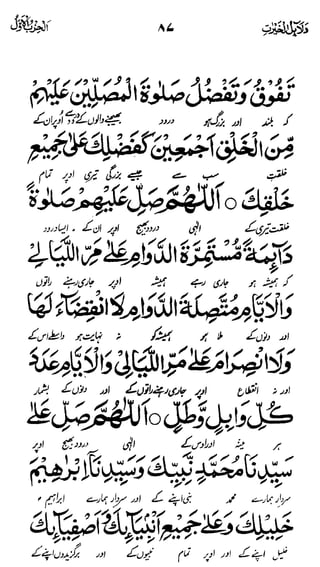 دلائل الخیرت ۸۷ الحزب الاول
تَفُوْقُ وَتَفْضُلُ صَلٰوةَ الْمُصَلِّيْنَ عَلَيْهِمْ
کہ بلند اور بزرگ ہو درود بھیجنے والوں کے درود سے اوپر ان کے
مِّنَ الْخَلْقِ اَجْمَعِيْنَ كَفَضْلِكَ عَلٰى جَمِيْعِ
خلقت سب سے جیسے بزرگی تیری اوپر تمام
خَلْقِكَ ○ اَللّٰهُمَّ صَلِّ عَلَيْهِمْ صَلٰوةً
خلقت تیری کے الٰہی درود بھیج اوپر ان کے ۔ ایسا درود
دَآئِمَةً مُّسْتَمِرَّةَ الدَّوَامِ عَلٰى مَرِّ اللَّيَالِيْ
کہ ہمیشہ ہو جاری رہے ہمیشہ اوپر جاری رہنے راتوں
وَالْاَيَّامِ مُتَّصِلَةَ الدَّوَامِ لَا انْقِضَآءَ لَهَا
اور دنوں کے ملا ہو ہمیشہ کو نہ نہایت ہو واسطے اس کے
وَلَا انْصِرَامَ عَلٰى مَرِّ اللَّيَالِيْ وَالْاَيَّامِ عَدَدَ
اور نہ انقطاع اوپر جاری رہنے راتوں کے اور دنوں کے بشمار
كُلِّ وَابِلٍ وَّطَلٍّ ○ اَللّٰهُمَّ صَلِّ عَلٰى
ہر مینہ اور اوس کے الٰہی درود بھیج اوپر
سَيِّدِنَا مُحَمَّدٍ نَّبِيِّكَ وَسَيِّدِنَآ اِبْرٰهِيْمَ
سردار ہمارے محمد نبی اپنے کے اور سردار ہمارے ابراہیم
خَلِيْلِكَ وَعَلٰى جَمِيْعِ اَنْبِيَآئِكَ وَاَصْفِيَآئِكَ
خلیل اپنے کے اور اوپر تمام نبیوں کے اور برگزیدوں اپنے کے